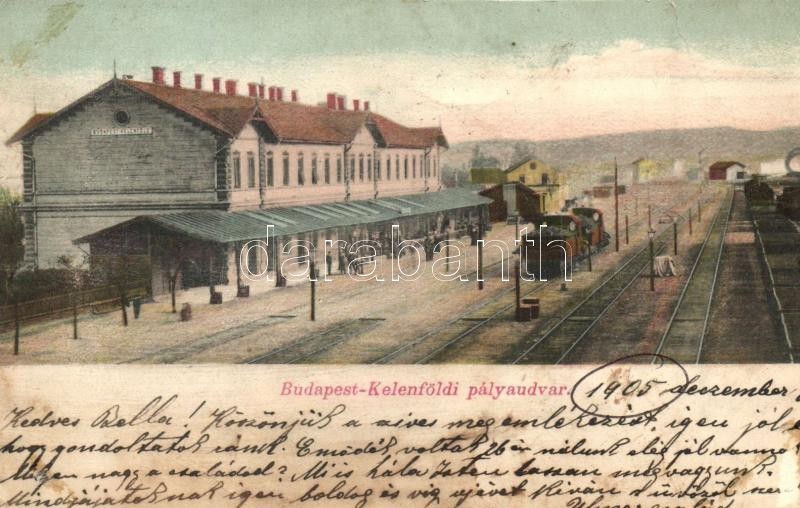 BUDAPEST-KELENFÖLD
darabanth
Budapest-Kelenföldi pályaudvar.
1905 deczember
Kedves Bella! Köszönjük a szives megemlékezést, igen jól
hogy gondoltatok ránk. Emödék voltak 26én nálunk elég jól
Milyen nagy a családod? Mi is hála Isten lassan megvagyunk.
Mindjájatoknak igen boldog és vig ujévet kiván s üdvözöl